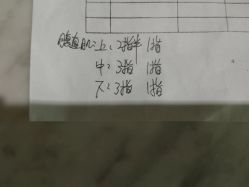 腹直肌:上:2指半 1指
中:3指 1指
下:3指 1指